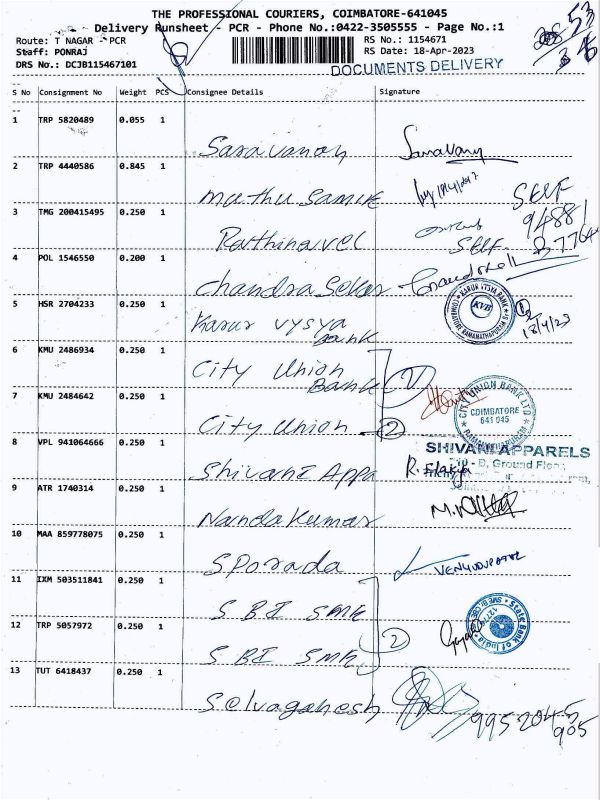 THE PROFESSIONAL COURIERS, COIMBATORE-641045
Delivery Runsheet - PCR - Phone No.:0422-3505555 - Page No.:1
Route: T NAGAR - PCR RS No.: 1154671
Staff: PONRAJ RS Date: 18-Apr-2023
DRS No.: DCJB115467101 DOCUMENTS DELIVERY
53
S No Consignment No Weight PCS Consignee Details Signature
1 TRP 5820489 0.055 1 Saravanan
2 TRP 4440586 0.845 1 muthu Samik
SELF
3 TMG 200415495 0.250 1 Rathinavel SELF
94881
4 POL 1546550 0.200 1 Chandra Sekar
5 HSR 2704233 0.250 1 Karur vysya Bank
KARUR VYSYA BANK
KVB
18/4/23
6 KMU 2486934 0.250 1 City Union Bank
CITY UNION BANK LTD
COIMBATORE
641 045
7 KMU 2484642 0.250 1 City Union 2
8 VPL 941064666 0.250 1 Shivani Appa R. Elakiya
SHIVANI APPARELS
Ground Floor
9 ATR 1740314 0.250 1 Nandakumar
10 MAA 859778075 0.250 1 SPorada
11 IXM 503511841 0.250 1 SBI SMK
State Bank of India
12 TRP 5057972 0.250 1 SBI SMK 2
13 TUT 6418437 0.250 1 Selvaganesh
995 204 5
905